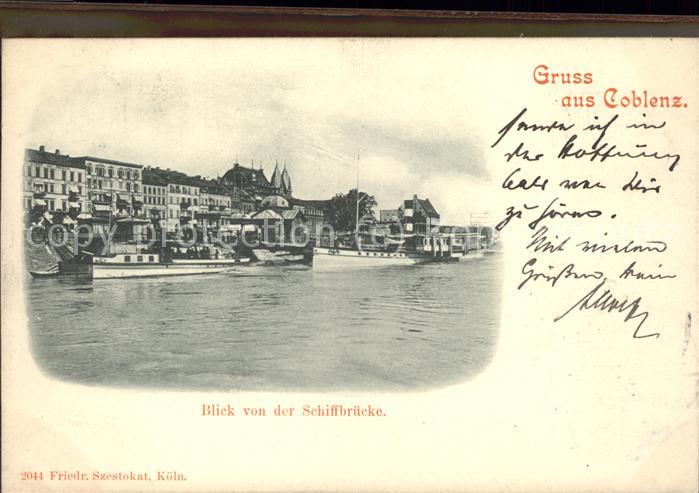 Gruss
aus Coblenz.
sende ich in
der Hoffnung
bald von Dir
zu hören.
Mit vielen
Grüßen Dein
copy protection for
Blick von der Schiffbrücke.
2044 Friedr. Szestokat, Köln.